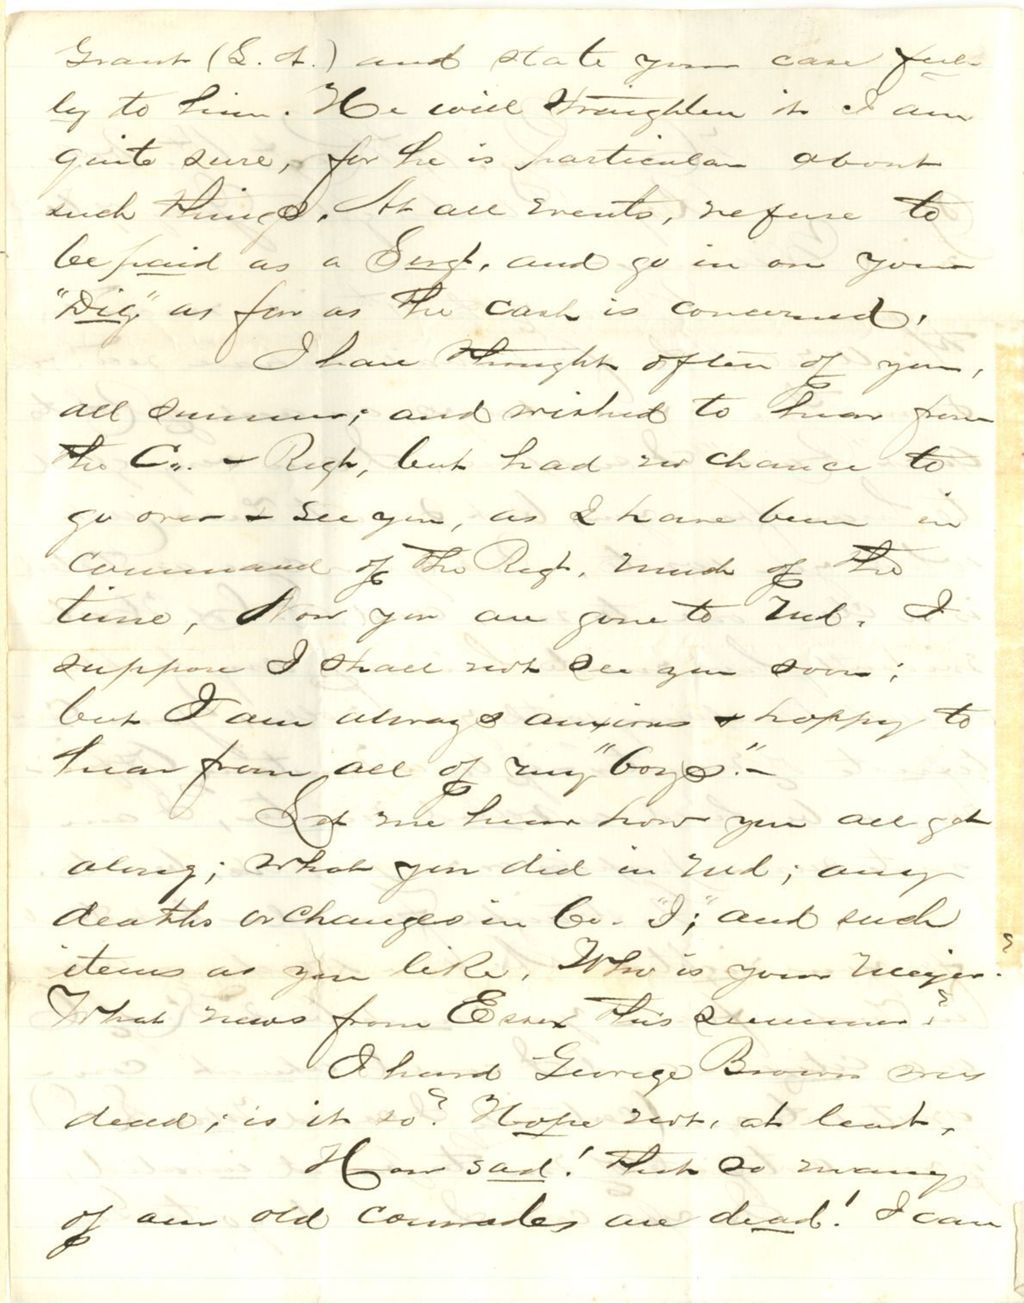 Grant (L. A.) and state your case ful-
ly to him. He will straighten it I am
quite sure, for he is particular about
such things. At all events, refuse to
be paid as a Sergt. and go in on your
"Dig" as far as the cash is concerned.
I have thought often of you,
all summer; and wished to hear from
the Co. & Regt, but had no chance to
go over & see you, as I have been in
Command of the Regt. much of the
time, Now you are gone to Md. I
suppose I shall not see you soon;
but I am always anxious & happy to
hear from all of my "boys". -
Let me hear how you all get
along; what you did in Md; any
deaths or changes in Co. "I;" and such
items as you like. Who is your Major?
What news from Essex this summer?
I heard George Brown was
dead; is it so? Hope not, at least.
How sad! that so many
of our old comrades are dead! I can